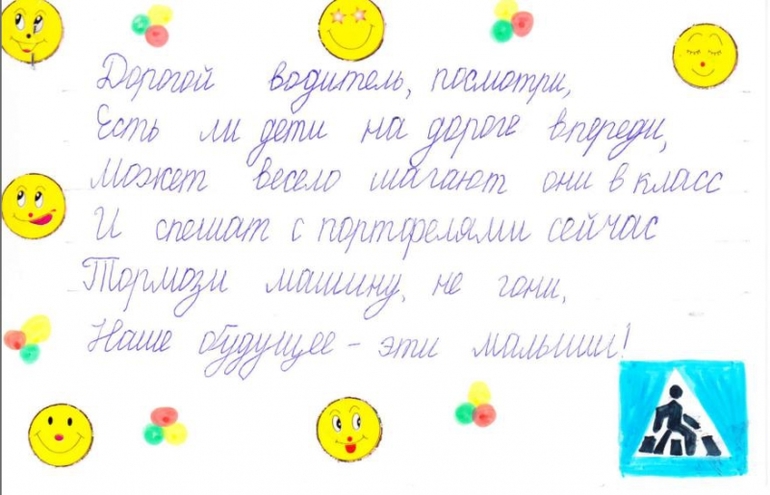 Дорогой водитель, посмотри,
Есть ли дети на дороге впереди,
Может весело шагают они в класс
И спешат с портфелями сейчас
Тормози машину, не гони,
Наше будущее - эти малыши!